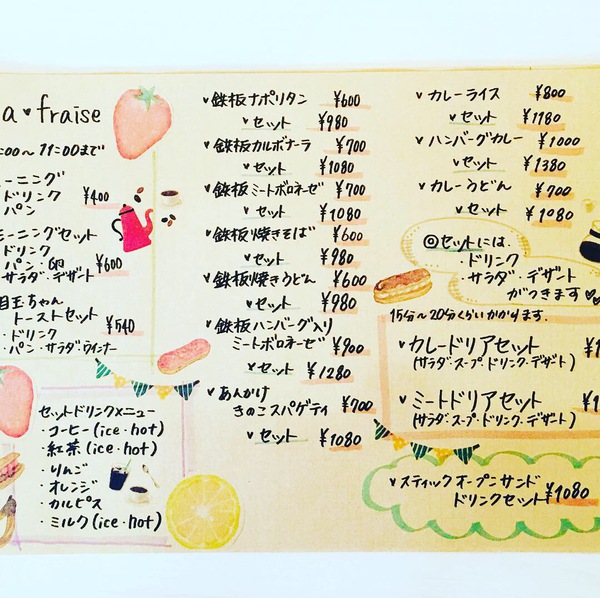 a♥fraise
:00〜11:00まで
ーニング
ドリンク
パン
¥400
モーニングセット
・ドリンク
パン・
サラダ・デザート
¥600
目玉ちゃん
トーストセット
・ドリンク
・パン・サラダ・ウィンナー
¥540
セットドリンクメニュー
・コーヒー(ice・hot)
・紅茶(ice・hot)
・りんご
・オレンジ
・カルピス
・ミルク(ice・hot)
♥鉄板ナポリタン ¥600
♥セット ¥980
♥鉄板カルボナーラ ¥700
♥セット ¥1080
♥鉄板ミートボロネーゼ ¥700
♥セット ¥1080
♥鉄板焼きそば ¥600
♥セット ¥980
♥鉄板焼きうどん ¥600
♥セット ¥980
♥鉄板ハンバーグ入り
ミートボロネーゼ ¥900
♥セット ¥1280
♥あんかけ
きのこスパゲティ ¥700
♥セット ¥1080
♥カレーライス ¥800
♥セット ¥1180
♥ハンバーグカレー ¥1000
♥セット ¥1380
♥カレーうどん ¥700
♥セット ¥1080
◎セットには
・ドリンク
・サラダ・デザート
がつきます♥♥
15分〜20分くらいかかります.
♥カレードリアセット ¥1
(サラダ・スープ・ドリンク・デザート)
♥ミートドリアセット ¥1
(サラダ・スープ・ドリンク・デザート)
♥スティックオープンサンド
ドリンクセット ¥1080